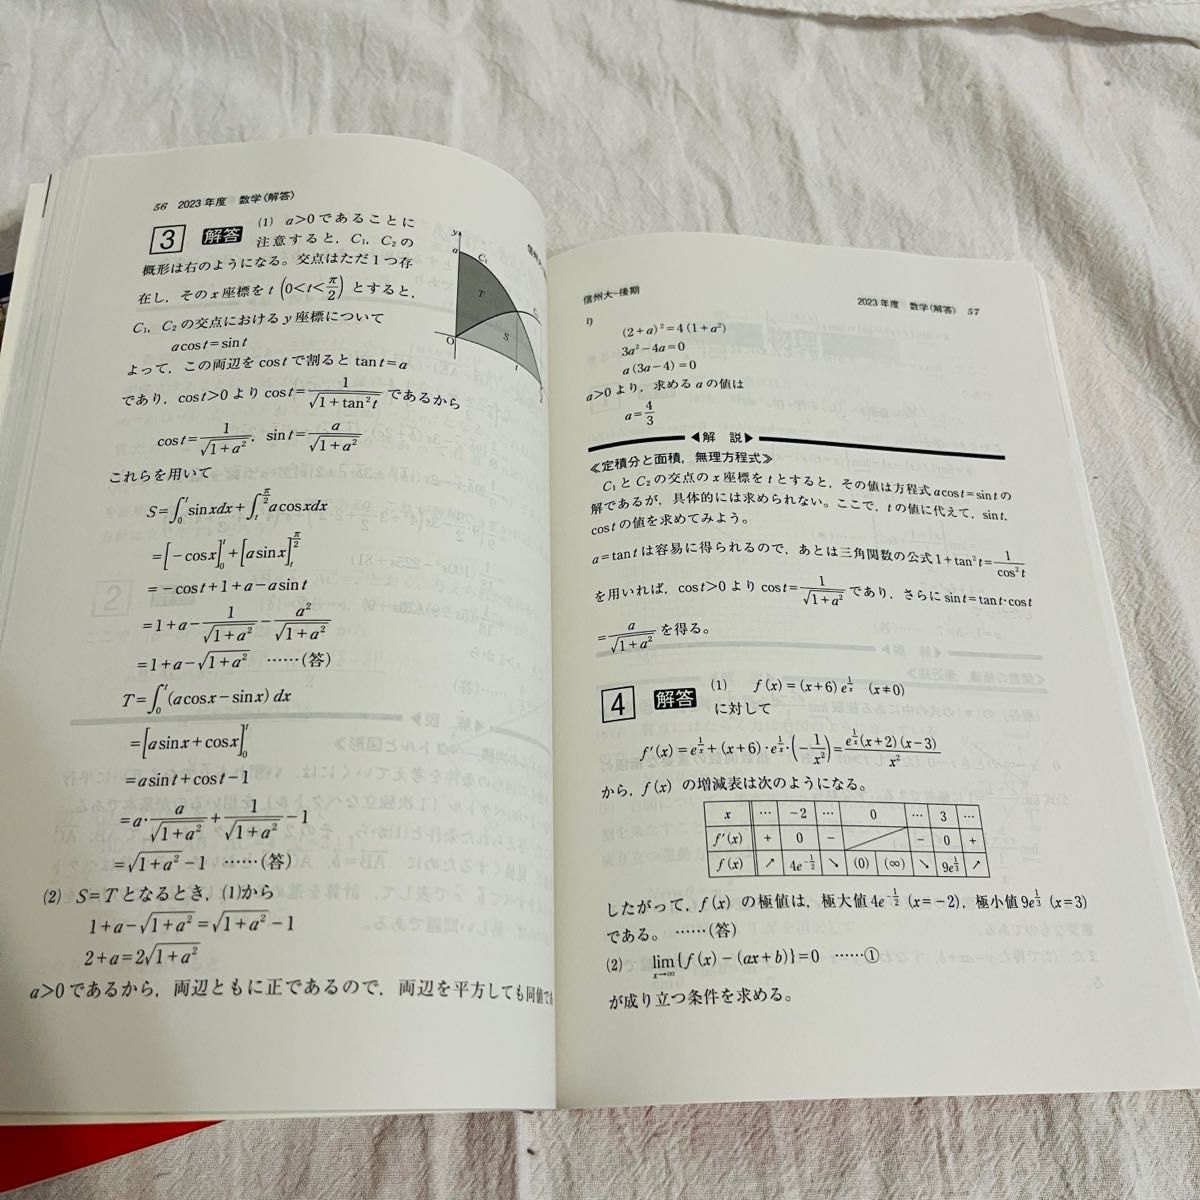 56 2023年度 数学〈解答〉
3 解答 (1) a>0であることに
注意すると，C₁，C₂の
概形は右のようになる。交点はただ1つ存
在し，そのx座標をt (0<t<π/2) とすると，
C₁，C₂の交点におけるy座標について
acost=sint
よって，この両辺をcostで割ると tant=a
であり，cost>0より cost=1/√(1+tan²t) であるから
cost=1/√(1+a²)，sint=a/√(1+a²)
これらを用いて
S=∫₀ᵗsinxdx+∫ₜ^(π/2)acosxdx
=[-cosx]₀ᵗ+[asinx]ₜ^(π/2)
=-cost+1+a-asint
=1+a-1/√(1+a²)-a²/√(1+a²)
=1+a-√(1+a²) ……(答)
T=∫₀ᵗ(acosx-sinx)dx
=[asinx+cosx]₀ᵗ
=asint+cost-1
=a·a/√(1+a²)+1/√(1+a²)-1
=√(1+a²)-1 ……(答)
(2) S=Tとなるとき，(1)から
1+a-√(1+a²)=√(1+a²)-1
2+a=2√(1+a²)
a>0であるから，両辺ともに正であるので，両辺を平方しても同値で
y
a
C₁
T
S
O
t
信州大-後期
2023年度 数学〈解答〉 57
(2+a)²=4(1+a²)
3a²-4a=0
a(3a-4)=0
a>0より，求めるaの値は
a=4/3
◀解 説▶
≪定積分と面積，無理方程式≫
C₁とC₂の交点のx座標をtとすると，その値は方程式acost=sintの
解であるが，具体的には求められない。ここで，tの値に代えて，sint，
costの値を求めてみよう。
a=tantは容易に得られるので，あとは三角関数の公式1+tan²t=1/cos²t
を用いれば，cost>0より cost=1/√(1+a²) であり，さらにsint=tant·cost
=a/√(1+a²) を得る。
4 解答 (1) f(x)=(x+6)e^(1/x) (x≠0)
に対して
f'(x)=e^(1/x)+(x+6)·e^(1/x)·(-1/x²)=e^(1/x)(x+2)(x-3)/x²
から，f(x)の増減表は次のようになる。
x … -2 … 0 … 3 …
f'(x) + 0 - - 0 +
f(x) ↗ 4e^(-1/2) ↘ (0) (∞) ↘ 9e^(1/3) ↗
したがって，f(x)の極値は，極大値4e^(-1/2) (x=-2)，極小値9e^(1/3) (x=3)
である。……(答)
(2) lim_(x→∞){f(x)-(ax+b)}=0 ……①
が成り立つ条件を求める。